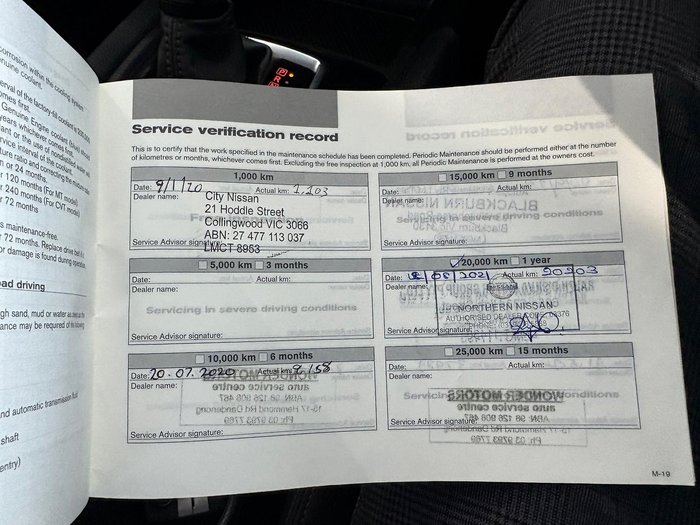 corrosion within the cooling system
genuine coolant.
interval of the factory-fill coolant is
comes first.
Genuine Engine coolant (blue) should
years whichever comes first)
service interval of the coolant.
or 24 months.
120 months (For MT model)
240 months (For CVT model)
72 months
s maintenance-free.
72 months. Replace drive belt
or damage is found during operation.
ad driving
gh sand, mud or water as
ance may be required of the
and automatic transmission fluid
shaft
entry)
Service verification record
This is to certify that the work specified in the maintenance schedule has been completed. Periodic Maintenance should be performed either at the number
of kilometres or months, whichever comes first. Excluding the free inspection at 1,000 km, all Periodic Maintenance is performed at the owners cost.
1,000 km
Date: 9/1/20 Actual km: 1,103
Dealer name:
City Nissan
21 Hoddle Street
Collingwood VIC 3066
ABN: 27 477 113 037
LMCT 8953
Service Advisor signature:
5,000 km 3 months
Date: Actual km:
Dealer name:
Servicing in severe driving conditions
Service Advisor signature:
10,000 km 6 months
Date: 20.07.2020 Actual km:
Dealer name:
WONDER MOTORS
auto service centre
ABN: 96 126 906 467
15-17 Hammond Rd Dandenong
Ph: 03 9793 7769
Service Advisor signature:
15,000 km 9 months
Date: Actual km:
Dealer name:
BLACKBURN NISSAN
Servicing in severe driving conditions
Service Advisor signature:
20,000 km 1 year
Date: Actual km: 20203
Dealer name:
NORTHERN NISSAN
AUTHORISED DEALER
Service Advisor signature:
25,000 km 15 months
Date: Actual km:
Dealer name:
WONDER MOTORS
auto service centre
ABN: 96 126 906 467
15-17 Hammond Rd Dandenong
Ph: 03 9793 7769
Service Advisor signature:
M-19